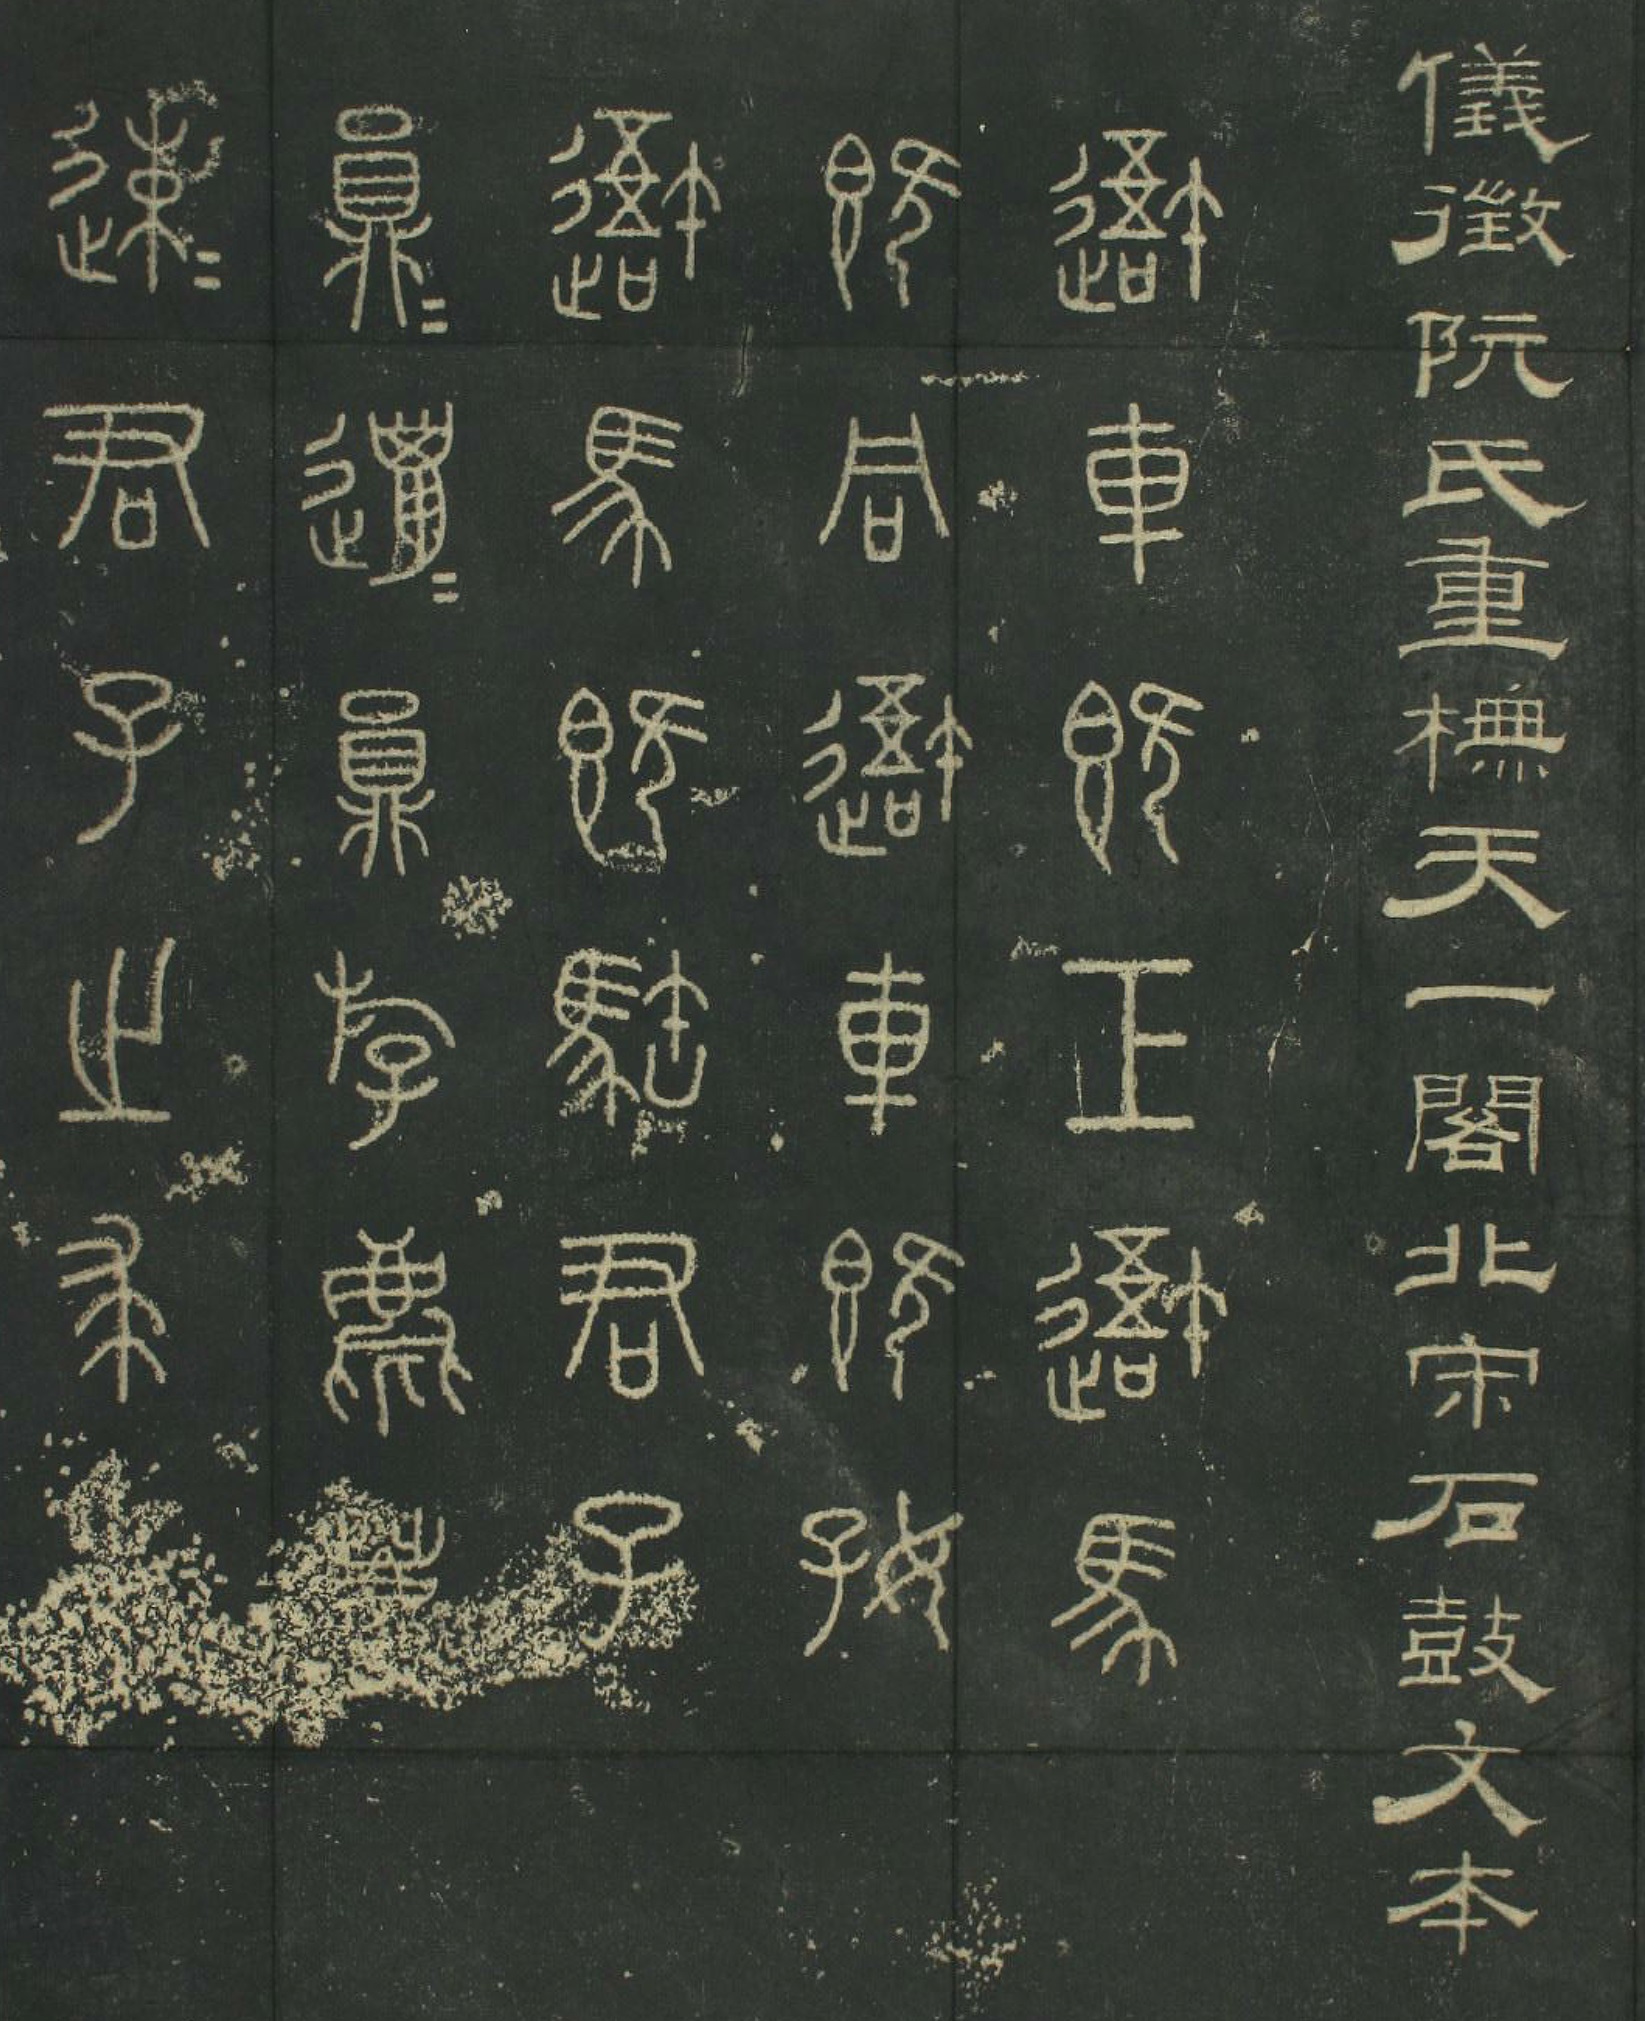 儀徵阮氏重橅天一閣北宋石鼓文本
䢒車既工䢒馬
既同䢒車既𡥘
䢒馬既駓君子
員=邋=員斿麀
速=君子之求